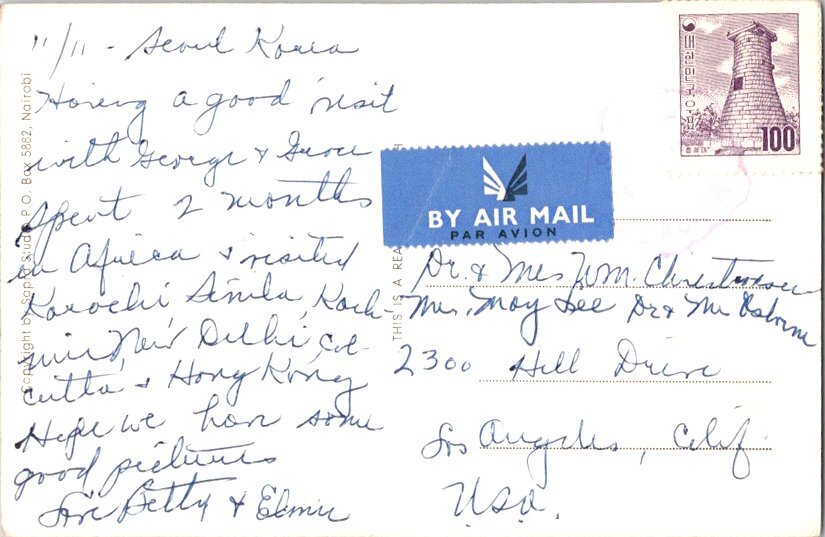 11/11 - Seoul Korea
Having a good visit
with George & Grace
Spent 2 months
in Africa & visited
Karachi, Simla, Kash-
mir, New Delhi, Cal-
cutta & Hong Kong
Hope we have some
good pictures
Love Betty & Elmer
Copyright by Sapra Studio P.O. Box 5882, Nairobi
THIS IS A REA
BY AIR MAIL
PAR AVION
대한민국우표
첨성대
100
Dr. & Mrs Wm. Christensen
Mrs. May Lee Dr & Mrs Osborne
2300 Hill Drive
Los Angeles, Calif.
U.S.A.